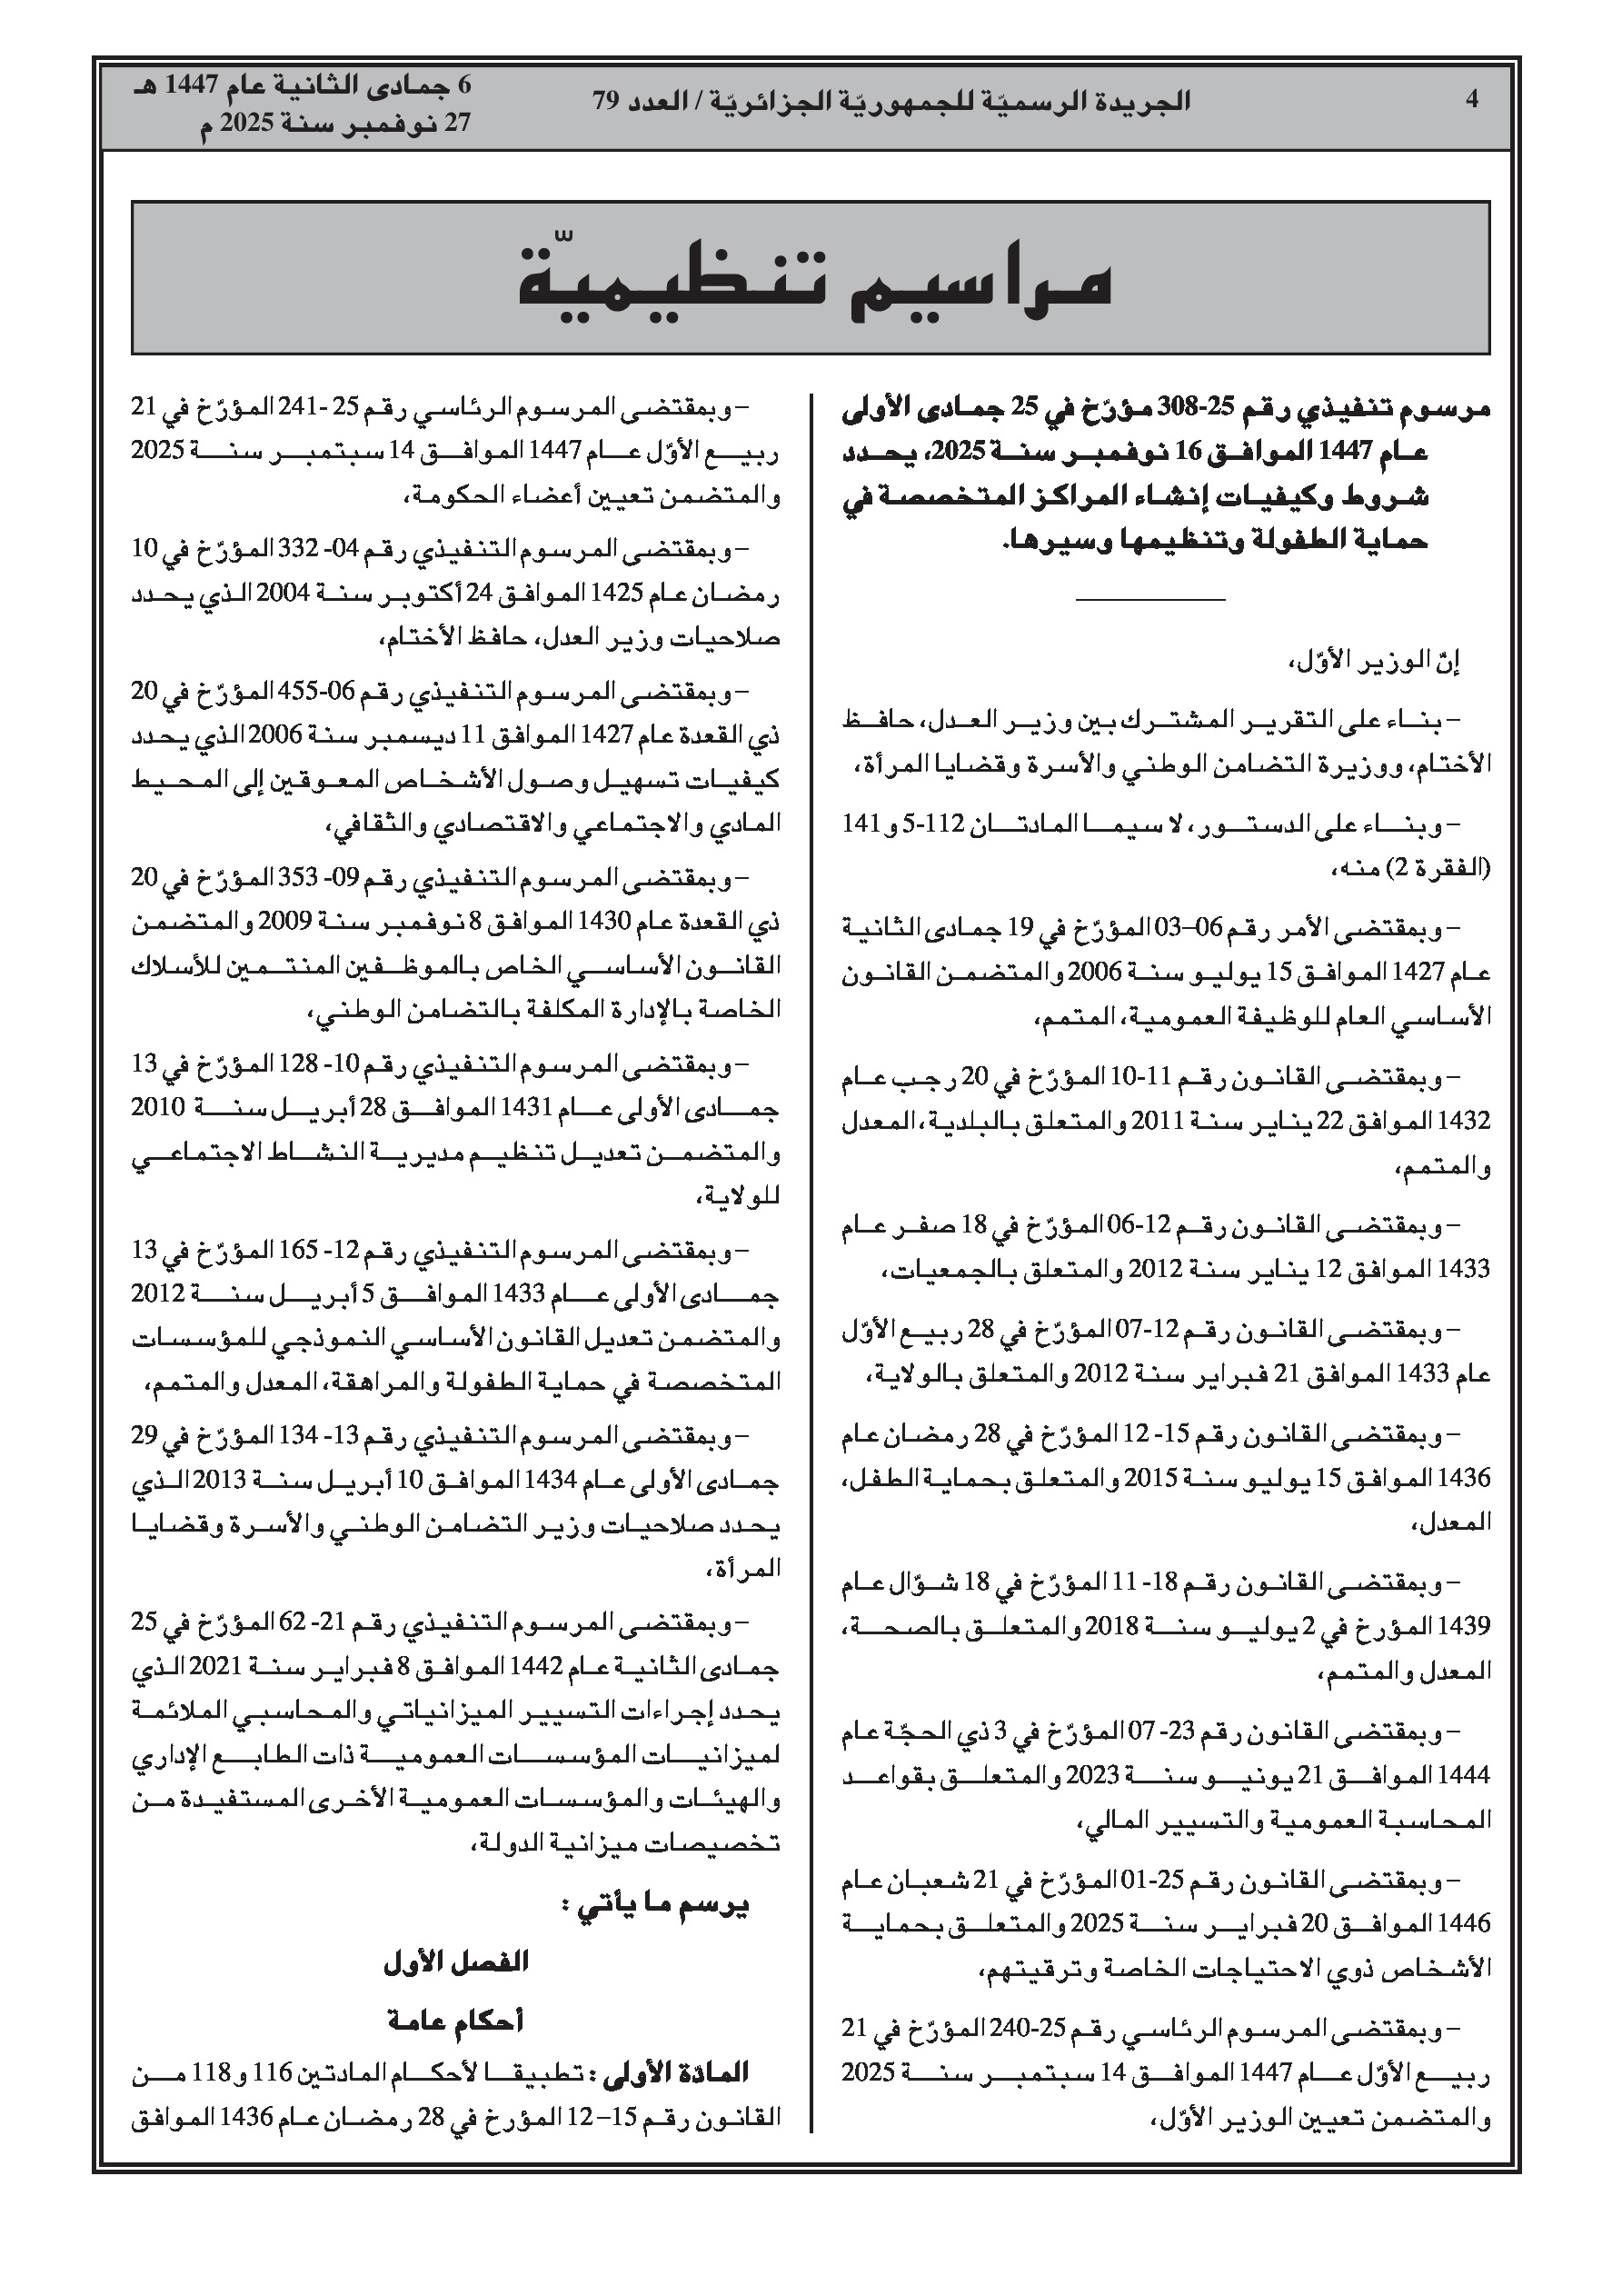 4
الجريدة الرسميّة للجمهوريّة الجزائريّة / العدد 79
6 جمادى الثانية عام 1447 هـ
27 نوفمبر سنة 2025 م
مراسيم تنظيميّة
مرسوم تنفيذي رقم 25-308 مؤرّخ في 25 جمادى الأولى
عام 1447 الموافق 16 نوفمبر سنة 2025، يحدد
شروط وكيفيات إنشاء المراكز المتخصصة في
حماية الطفولة وتنظيمها وسيرها.
إنّ الوزير الأوّل،
– بناء على التقرير المشترك بين وزير العدل، حافظ
الأختام، ووزيرة التضامن الوطني والأسرة وقضايا المرأة،
– وبناء على الدستور، لا سيما المادتان 112-5 و141
(الفقرة 2) منه،
– وبمقتضى الأمر رقم 06–03 المؤرّخ في 19 جمادى الثانية
عام 1427 الموافق 15 يوليو سنة 2006 والمتضمن القانون
الأساسي العام للوظيفة العمومية، المتمم،
– وبمقتضى القانون رقم 11-10 المؤرّخ في 20 رجب عام
1432 الموافق 22 يناير سنة 2011 والمتعلق بالبلدية، المعدل
والمتمم،
– وبمقتضى القانون رقم 12-06 المؤرّخ في 18 صفر عام
1433 الموافق 12 يناير سنة 2012 والمتعلق بالجمعيات،
– وبمقتضى القانون رقم 12-07 المؤرّخ في 28 ربيع الأوّل
عام 1433 الموافق 21 فبراير سنة 2012 والمتعلق بالولاية،
– وبمقتضى القانون رقم 15- 12 المؤرّخ في 28 رمضان عام
1436 الموافق 15 يوليو سنة 2015 والمتعلق بحماية الطفل،
المعدل،
– وبمقتضى القانون رقم 18- 11 المؤرّخ في 18 شوّال عام
1439 المؤرخ في 2 يوليو سنة 2018 والمتعلق بالصحة،
المعدل والمتمم،
– وبمقتضى القانون رقم 23- 07 المؤرّخ في 3 ذي الحجّة عام
1444 الموافق 21 يونيو سنة 2023 والمتعلق بقواعد
المحاسبة العمومية والتسيير المالي،
– وبمقتضى القانون رقم 25-01 المؤرّخ في 21 شعبان عام
1446 الموافق 20 فبراير سنة 2025 والمتعلق بحماية
الأشخاص ذوي الاحتياجات الخاصة وترقيتهم،
– وبمقتضى المرسوم الرئاسي رقم 25-240 المؤرّخ في 21
ربيع الأوّل عام 1447 الموافق 14 سبتمبر سنة 2025
والمتضمن تعيين الوزير الأوّل،
– وبمقتضى المرسوم الرئاسي رقم 25 -241 المؤرّخ في 21
ربيع الأوّل عام 1447 الموافق 14 سبتمبر سنة 2025
والمتضمن تعيين أعضاء الحكومة،
– وبمقتضى المرسوم التنفيذي رقم 04- 332 المؤرّخ في 10
رمضان عام 1425 الموافق 24 أكتوبر سنة 2004 الذي يحدد
صلاحيات وزير العدل، حافظ الأختام،
– وبمقتضى المرسوم التنفيذي رقم 06-455 المؤرّخ في 20
ذي القعدة عام 1427 الموافق 11 ديسمبر سنة 2006 الذي يحدد
كيفيات تسهيل وصول الأشخاص المعوقين إلى المحيط
المادي والاجتماعي والاقتصادي والثقافي،
– وبمقتضى المرسوم التنفيذي رقم 09- 353 المؤرّخ في 20
ذي القعدة عام 1430 الموافق 8 نوفمبر سنة 2009 والمتضمن
القانون الأساسي الخاص بالموظفين المنتمين للأسلاك
الخاصة بالإدارة المكلفة بالتضامن الوطني،
– وبمقتضى المرسوم التنفيذي رقم 10- 128 المؤرّخ في 13
جمادى الأولى عام 1431 الموافق 28 أبريل سنة 2010
والمتضمن تعديل تنظيم مديرية النشاط الاجتماعي
للولاية،
– وبمقتضى المرسوم التنفيذي رقم 12- 165 المؤرّخ في 13
جمادى الأولى عام 1433 الموافق 5 أبريل سنة 2012
والمتضمن تعديل القانون الأساسي النموذجي للمؤسسات
المتخصصة في حماية الطفولة والمراهقة، المعدل والمتمم،
– وبمقتضى المرسوم التنفيذي رقم 13- 134 المؤرّخ في 29
جمادى الأولى عام 1434 الموافق 10 أبريل سنة 2013 الذي
يحدد صلاحيات وزير التضامن الوطني والأسرة وقضايا
المرأة،
– وبمقتضى المرسوم التنفيذي رقم 21- 62 المؤرّخ في 25
جمادى الثانية عام 1442 الموافق 8 فبراير سنة 2021 الذي
يحدد إجراءات التسيير الميزانياتي والمحاسبي الملائمة
لميزانيات المؤسسات العمومية ذات الطابع الإداري
والهيئات والمؤسسات العمومية الأخرى المستفيدة من
تخصيصات ميزانية الدولة،
يرسم ما يأتي :
الفصل الأول
أحكام عامة
المادّة الأولى : تطبيقا لأحكام المادتين 116 و118 من
القانون رقم 15– 12 المؤرخ في 28 رمضان عام 1436 الموافق